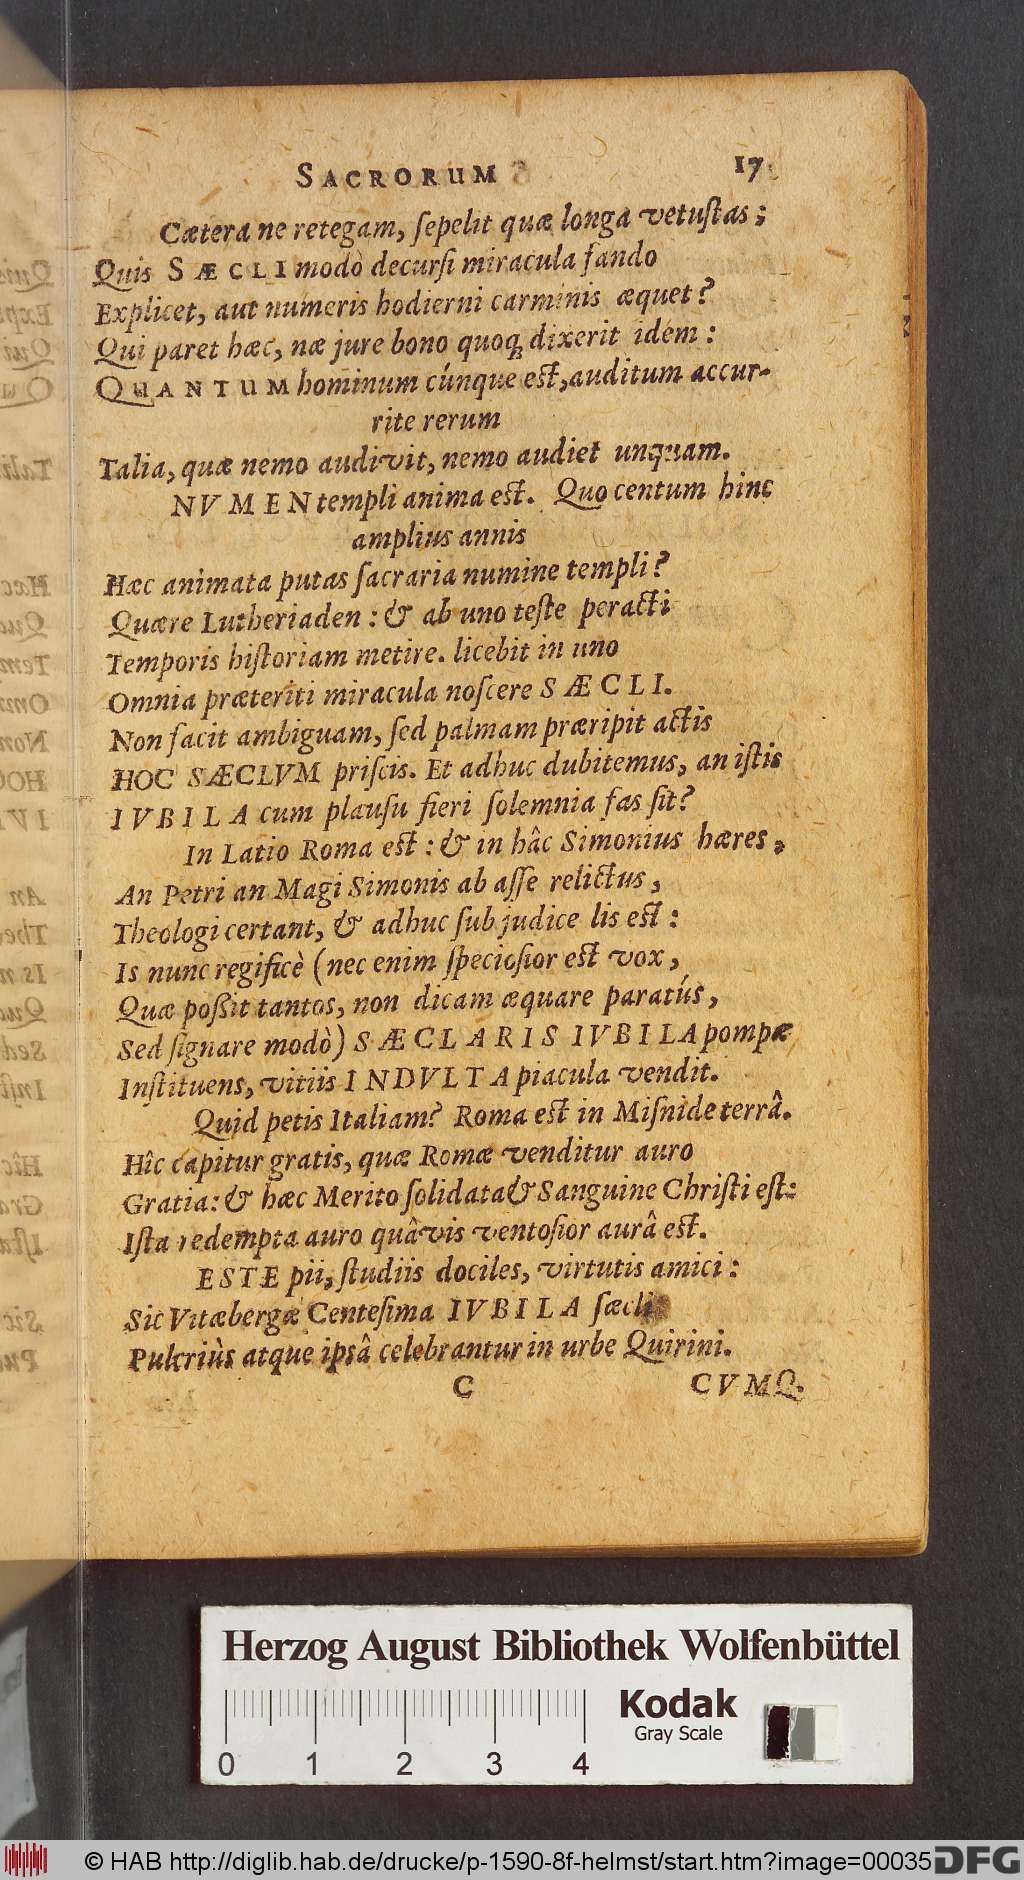 SACRORUM 17
Cætera ne retegam, ſepelit quæ longa vetuſtas;
Quis SÆCLI modò decurſi miracula fando
Explicet, aut numeris hodierni carminis æquet?
Qui paret hæc, næ jure bono quoq; dixerit idem:
QUANTUM hominum cúnque eſt, auditum accur-
rite rerum
Talia, quæ nemo audivit, nemo audiet unquam.
NVMEN templi anima eſt. Quo centum hinc
amplius annis
Hæc animata putas ſacraria numine templi?
Quære Lutheriaden: & ab uno teſte peracti
Temporis hiſtoriam metire. licebit in uno
Omnia præteriti miracula noſcere SÆCLI.
Non facit ambiguam, ſed palmam præripit actis
HOC SÆCLVM priſcis. Et adhuc dubitemus, an iſtis
IVBILA cum plauſu fieri ſolemnia fas ſit?
In Latio Roma eſt: & in hâc Simonius hæres,
An Petri an Magi Simonis ab aſſe relictus,
Theologi certant, & adhuc ſub judice lis eſt:
Is nunc regificè (nec enim ſpecioſior eſt vox,
Quæ poſſit tantos, non dicam æquare paratús,
Sed ſignare modò) SÆCLARIS IVBILA pompæ
Inſtituens, vitiis INDVLTA piacula vendit.
Quid petis Italiam? Roma eſt in Miſnide terrâ.
Hîc capitur gratis, quæ Romæ venditur auro
Gratia: & hæc Merito ſolidata & Sanguine Chriſti eſt:
Iſta redempta auro quâvis ventoſior aurâ eſt.
ESTE pii, ſtudiis dociles, virtutis amici:
Sic Vitæbergæ Centeſima IVBILA ſæcli
Pulcriùs atque ipsâ celebrantur in urbe Quirini.
C CVMQ.
Herzog August Bibliothek Wolfenbüttel
Kodak
Gray Scale
0 1 2 3 4
© HAB http://diglib.hab.de/drucke/p-1590-8f-helmst/start.htm?image=00035
DFG